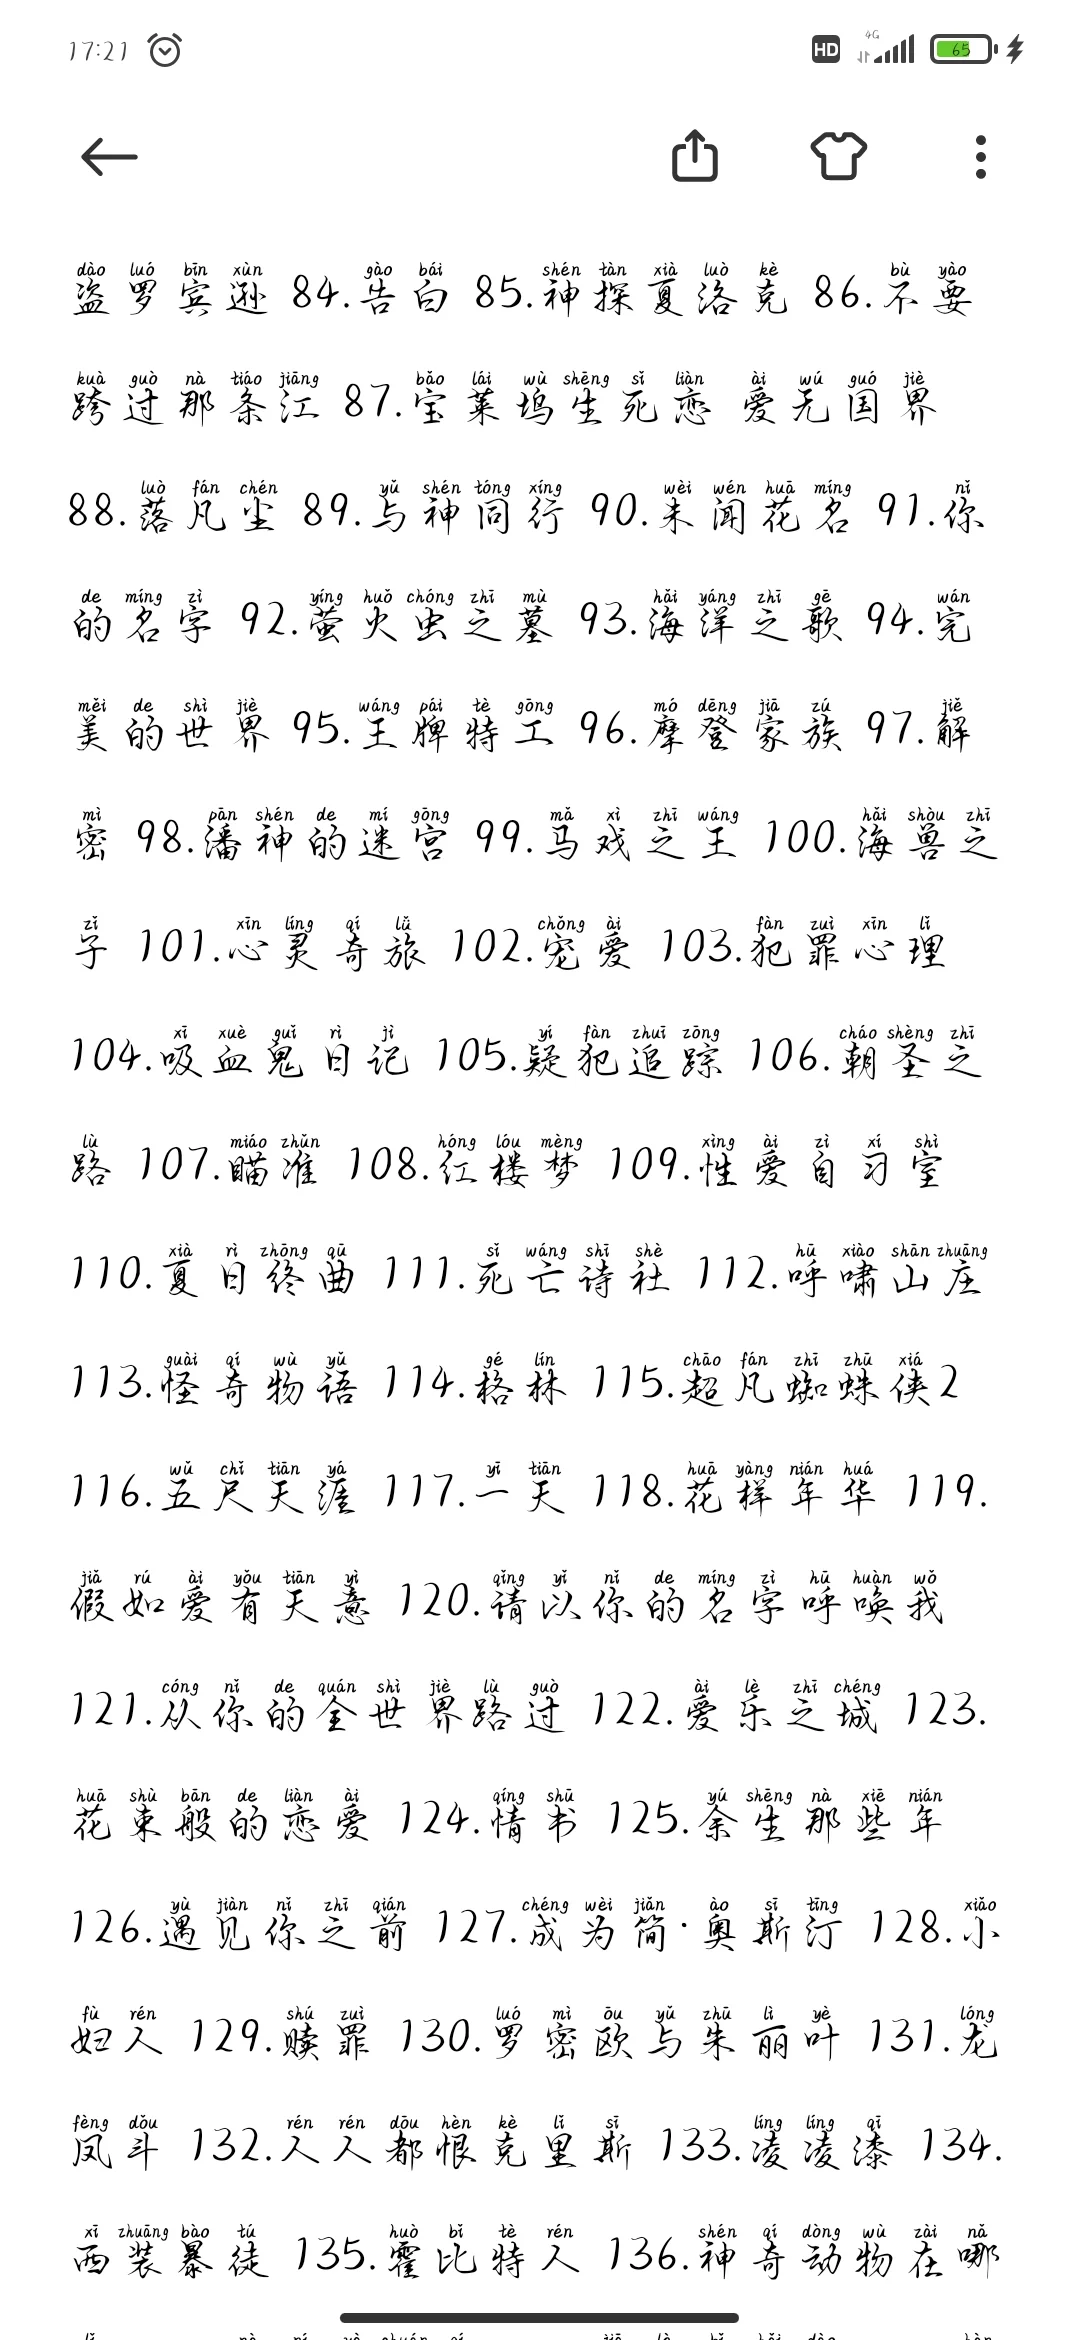 17:21 HD 4G 65
盗罗宾逊 84.告白 85.神探夏洛克 86.不要
跨过那条江 87.宝莱坞生死恋 爱无国界
88.落凡尘 89.与神同行 90.未闻花名 91.你
的名字 92.萤火虫之墓 93.海洋之歌 94.完
美的世界 95.王牌特工 96.摩登家族 97.解
密 98.潘神的迷宫 99.马戏之王 100.海兽之
子 101.心灵奇旅 102.宠爱 103.犯罪心理
104.吸血鬼日记 105.疑犯追踪 106.朝圣之
路 107.瞄准 108.红楼梦 109.性爱自习室
110.夏日终曲 111.死亡诗社 112.呼啸山庄
113.怪奇物语 114.格林 115.超凡蜘蛛侠2
116.五尺天涯 117.一天 118.花样年华 119.
假如爱有天意 120.请以你的名字呼唤我
121.从你的全世界路过 122.爱乐之城 123.
花束般的恋爱 124.情书 125.余生那些年
126.遇见你之前 127.成为简·奥斯汀 128.小
妇人 129.赎罪 130.罗密欧与朱丽叶 131.龙
凤斗 132.人人都恨克里斯 133.凌凌漆 134.
西装暴徒 135.霍比特人 136.神奇动物在哪